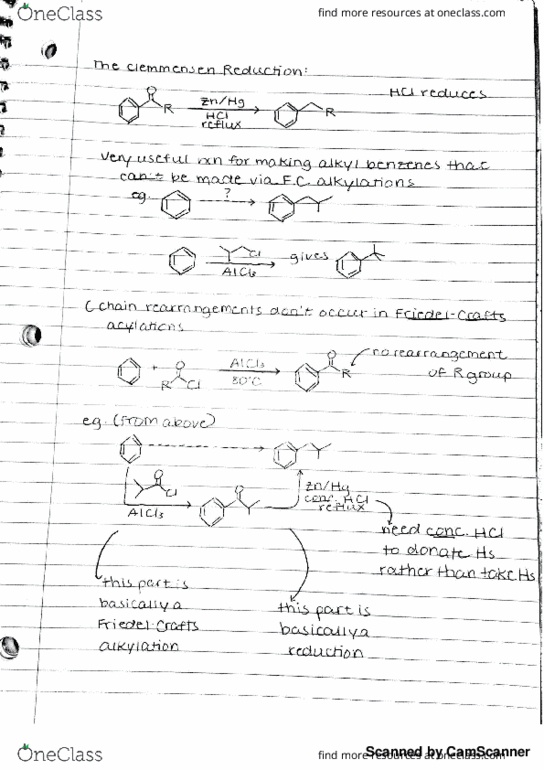 OneClass
find more resources at oneclass.com
The Clemmensen Reduction:
HCl reduces
O
R
Zn/Hg
HCl
reflux
R
Very useful rxn for making alkyl benzenes that
can't be made via F.C. alkylations
eg.
?
Cl
AlCl3
gives
C chain rearrangements don't occur in Friedel-Crafts
acylations
+
O
R
Cl
AlCl3
80°C
O
R
no rearrangement
of R group
eg. (from above)
O
Cl
AlCl3
O
Zn/Hg
conc. HCl
reflux
need conc. HCl
to donate Hs
rather than take Hs
this part is
basically a
Friedel-Crafts
alkylation
this part is
basically a
reduction
OneClass
find more resources at oneclass.com
Scanned by CamScanner